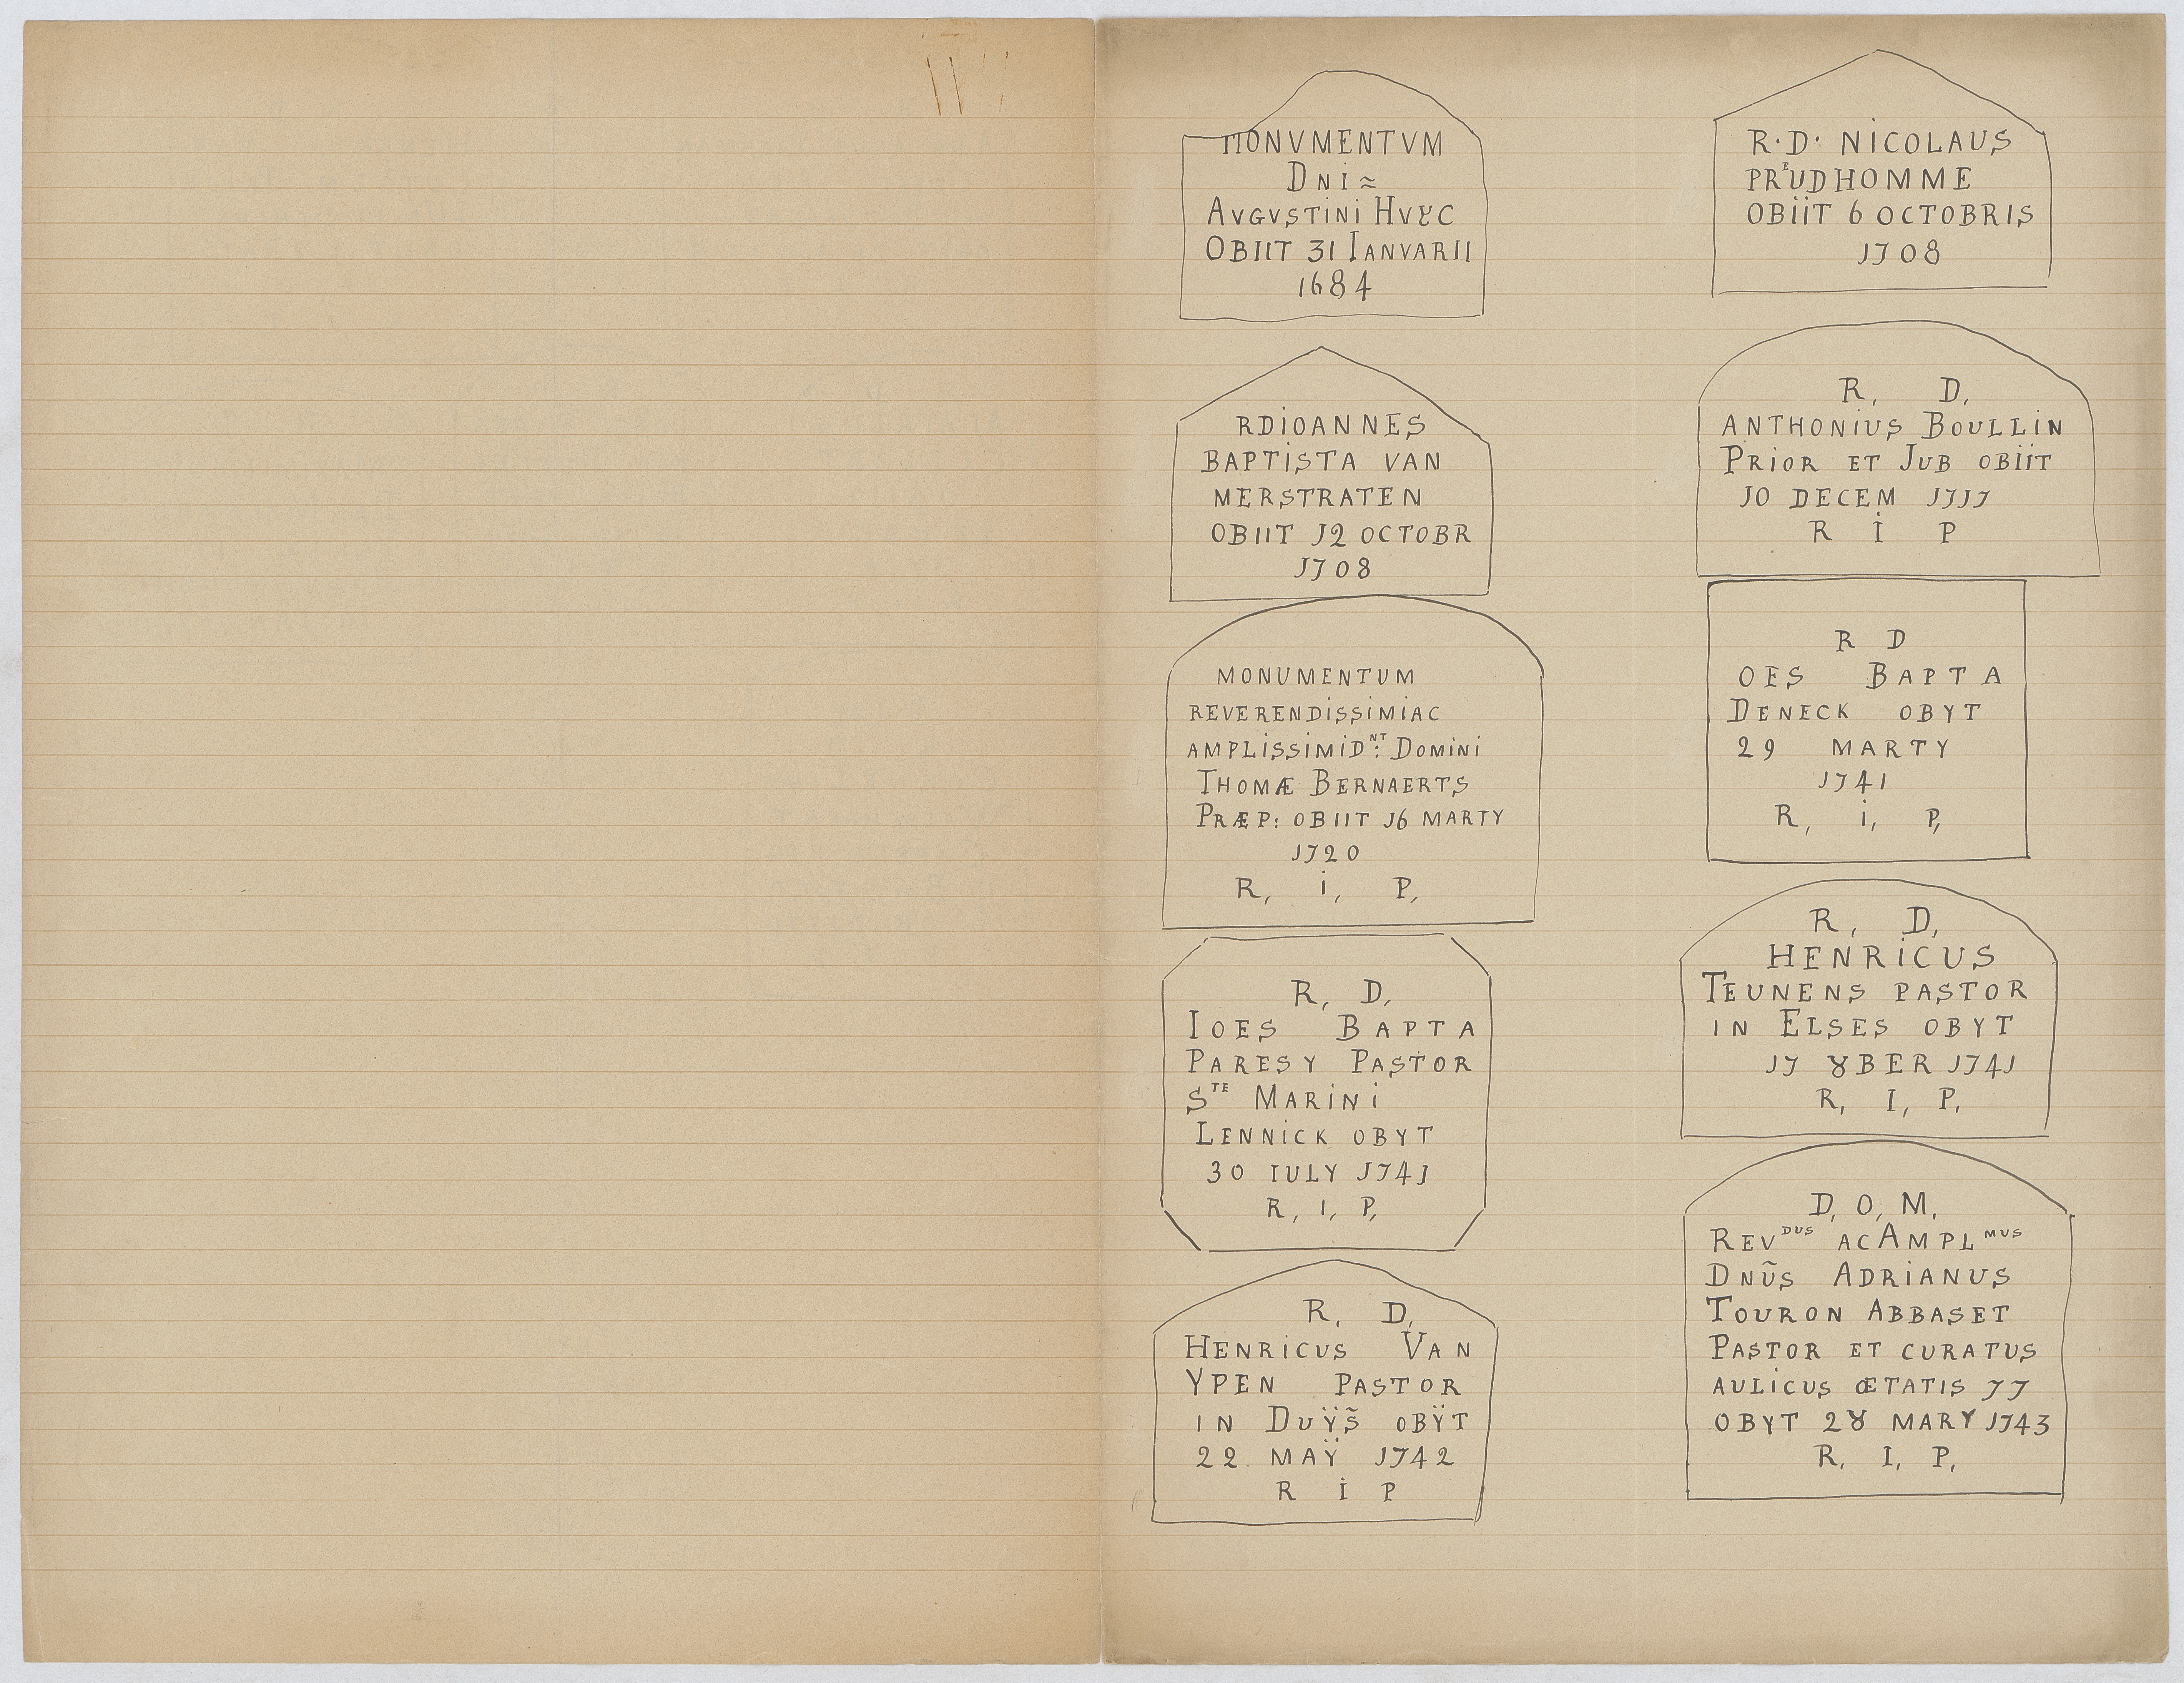 MONVMENTVM
DNI≈
AVGVSTINI HVYC
OBIIT 31 IANVARII
1684
RDIOANNES
BAPTISTA VAN
MERSTRATEN
OBIIT J2 OCTOBR
J708
MONUMENTUM
REVERENDISSIMIAC
AMPLISSIMID^NT: DOMINI
THOMÆ BERNAERTS
PRÆP: OBIIT J6 MARTY
J720
R, i, P,
R, D,
IOES BAPTA
PARESY PASTOR
S^TE MARINI
LENNICK OBYT
30 IULY J74J
R, I, P,
R, D,
HENRICUS VAN
YPEN PASTOR
IN DUŸS̃ OBŸT
22 MAŸ J742
R i P
R·D· NICOLAUS
PR^EUDHOMME
OBIIT 6 OCTOBRIS
J708
R, D,
ANTHONIUS BOULLIN
PRIOR ET JUB OBIIT
J0 DECEM J7J7
R i P
R D
OES BAPTA
DENECK OBYT
29 MARTY
J741
R, i, P,
R, D,
HENRICUS
TEUNENS PASTOR
IN ELSES OBYT
J7 8BER J74J
R, I, P,
D, O, M,
REV^DUS ACAMPL^MUS
DNŨS ADRIANUS
TOURON ABBASET
PASTOR ET CURATUS
AULICUS ŒTATIS 77
OBYT 28 MARY J743
R, I, P,